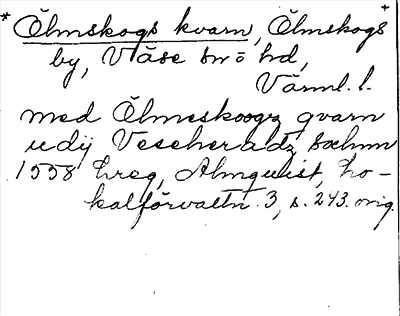 * Ölmskogs kvarn, Ölmskogs +
by, Väse sn o hd,
Värml. l.
med Ölmeskoogz qvarn
udij Vescheradz sochnn
1558 hreg, Almquist, Lo-
kalförvaltn. 3, s. 243. orig.